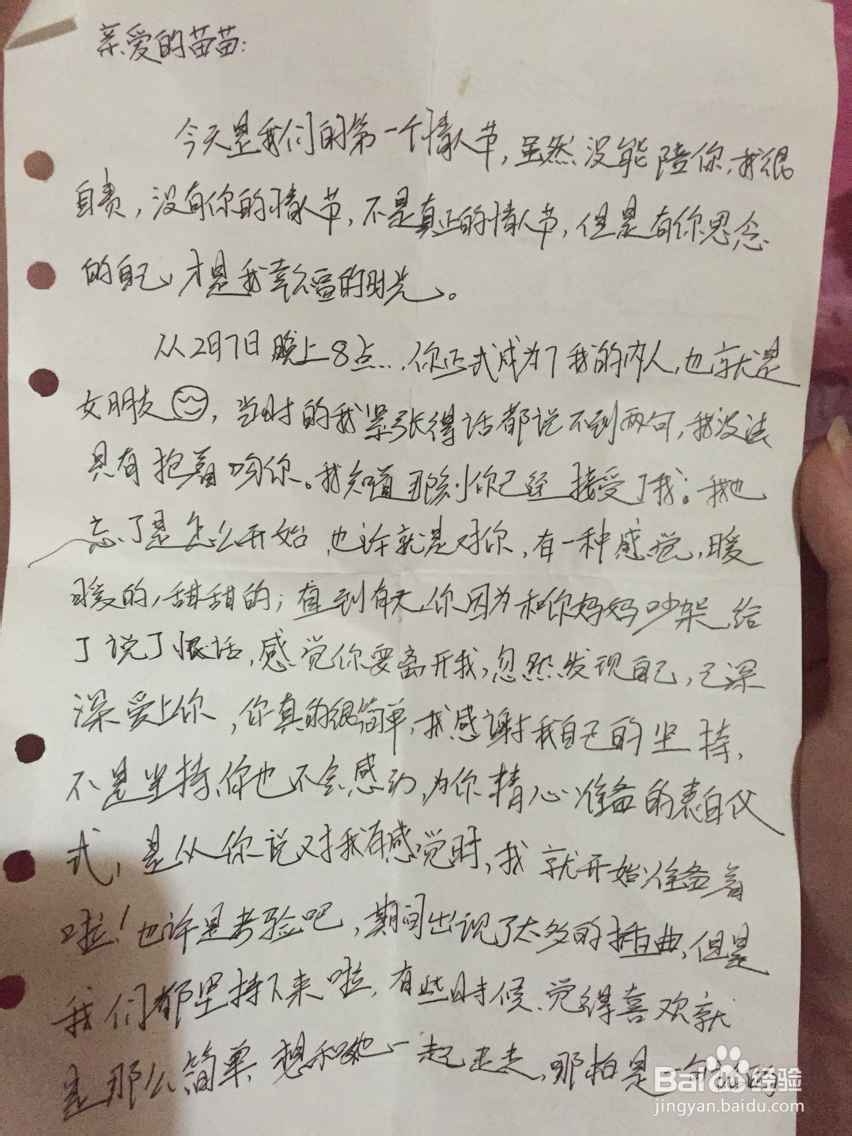 亲爱的苗苗:
今天是我们的第一个情人节,虽然没能陪你,我很
自责,没有你的情人节,不是真正的情人节,但是有你思念
的自己,才是我幸福的时光。
从2月7日晚上8点…你正式成为了我的内人,也就是
女朋友,当时的我紧张得话都说不到两句,我没法
只有抱着吻你。我知道那刻你已经接受了我。我也
忘了是怎么开始,也许就是对你,有一种感觉,暖
暖的,甜甜的;直到有天你因为和你妈妈吵架,给
了说了狠话,感觉你要离开我,忽然发现自己,已深
深爱上你,你真的很简单,我感谢我自己的坚持,
不是坚持你也不会感动,为你精心准备的表白仪
式,是从你说对我有感觉时,我就开始准备着
啦!也许是考验吧,期间出现了太多的插曲,但是
我们都坚持下来啦,有些时候,觉得喜欢就
是那么简单,想和她一起走走,那怕是一个
Baidu经验
jingyan.baidu.com